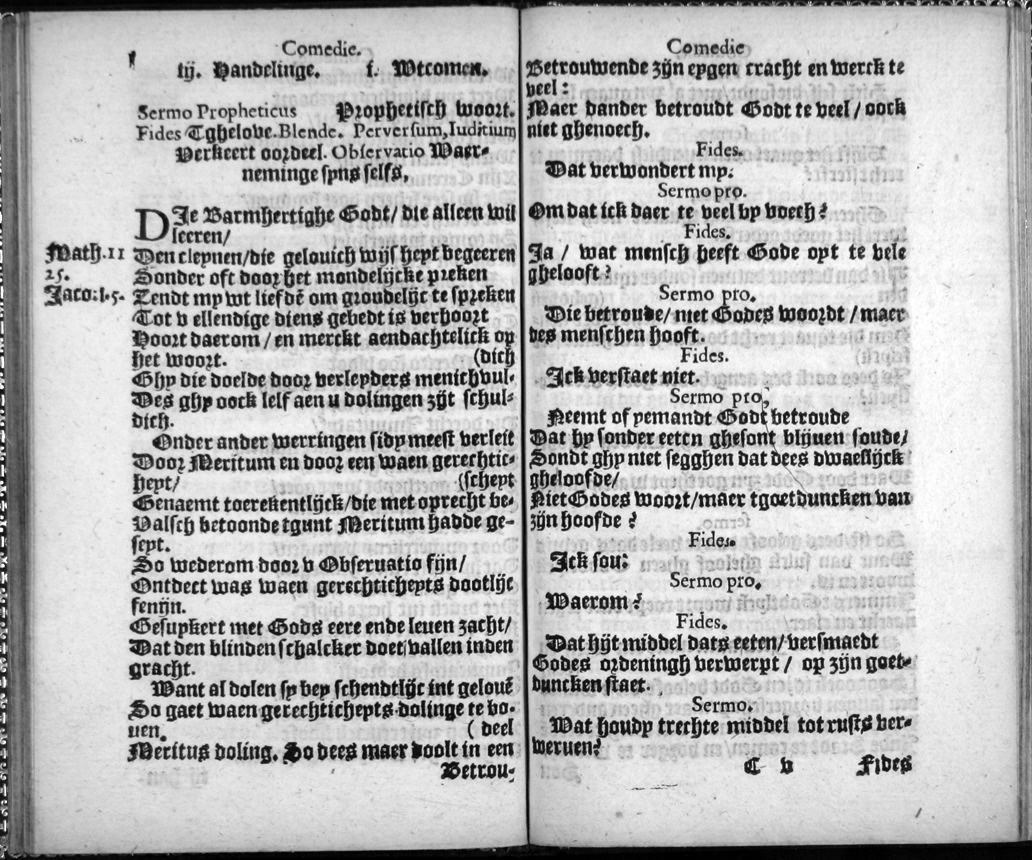 Comedie.
iij. Handelinge. j. Wtcomen.
Sermo Propheticus Prophetisch woort.
Fides Tghelove. Blende. Perversum, Iuditium
Verkeert oordeel. Observatio Waer-
neminge syns selfs,
DIe Barmhertighe Godt/ die alleen wil
leeren/
Math. 11
Den cleynen/die gelouich wijs heyt begeeren
25.
Sonder oft door het mondelijcke preken
Jaco: 1.5.
Zendt my wt liefdē om groudelijc te spreken
Tot v ellendige diens gebedt is verhoort
Hoort daerom/ en merckt aendachtelick op
het woort. (dich
Ghy die doelde door verleyders menichvul-
Des ghy oock self aen u dolingen zijt schul-
dich.
Onder ander werringen sidy meest verleit
Door Meritum en door een waen gerechtic-
heyt/ (scheyt
Genaemt toerekentlijck/die met oprecht be-
Valsch betoonde tgunt Meritum hadde ge-
seyt.
So wederom door v Obseruatio fijn/
Ontdect was waen gerechticheyts dootlijc
fenijn.
Gesuykert met Gods eere ende leuen zacht/
Dat den blinden schalcker doet vallen inden
gracht.
Want al dolen sy bey schendtlijc int gelouē
So gaet waen gerechticheyts dolinge te bo-
uen. ( deel
Meritus doling. So dees maer doolt in een
Betrou-
Comedie
Betrouwende zijn eygen cracht en werck te
veel:
Maer dander betroudt Godt te veel/ oock
niet ghenoech.
Fides.
Dat verwondert my.
Sermo pro.
Om dat ick daer te veel by voech?
Fides.
Ja / wat mensch heeft Gode oyt te vele
ghelooft?
Sermo pro.
Die betroude/ niet Godes woordt / maer
des menschen hooft.
Fides.
Ick verstaet niet.
Sermo pro,
Neemt of yemandt Godt betroude
Dat hy sonder eeten ghesont blijuen soude/
Sondt ghy niet segghen dat dees dwaeslijck
gheloofde/
Niet Godes woort/ maer tgoetduncken van
zijn hoofde ?
Fides.
Ick sou:
Sermo pro.
Waerom?
Fides.
Dat hijt middel dats eeten/ versmaedt
Godes ordeningh verwerpt / op zijn goet-
duncken staet.
Sermo.
Wat houdy trechte middel tot rusts ver-
weruen?
C v Fides